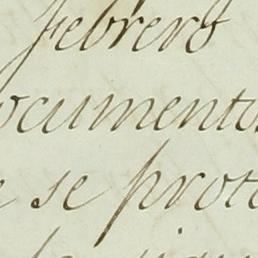 febrero
ocumento
e se prote